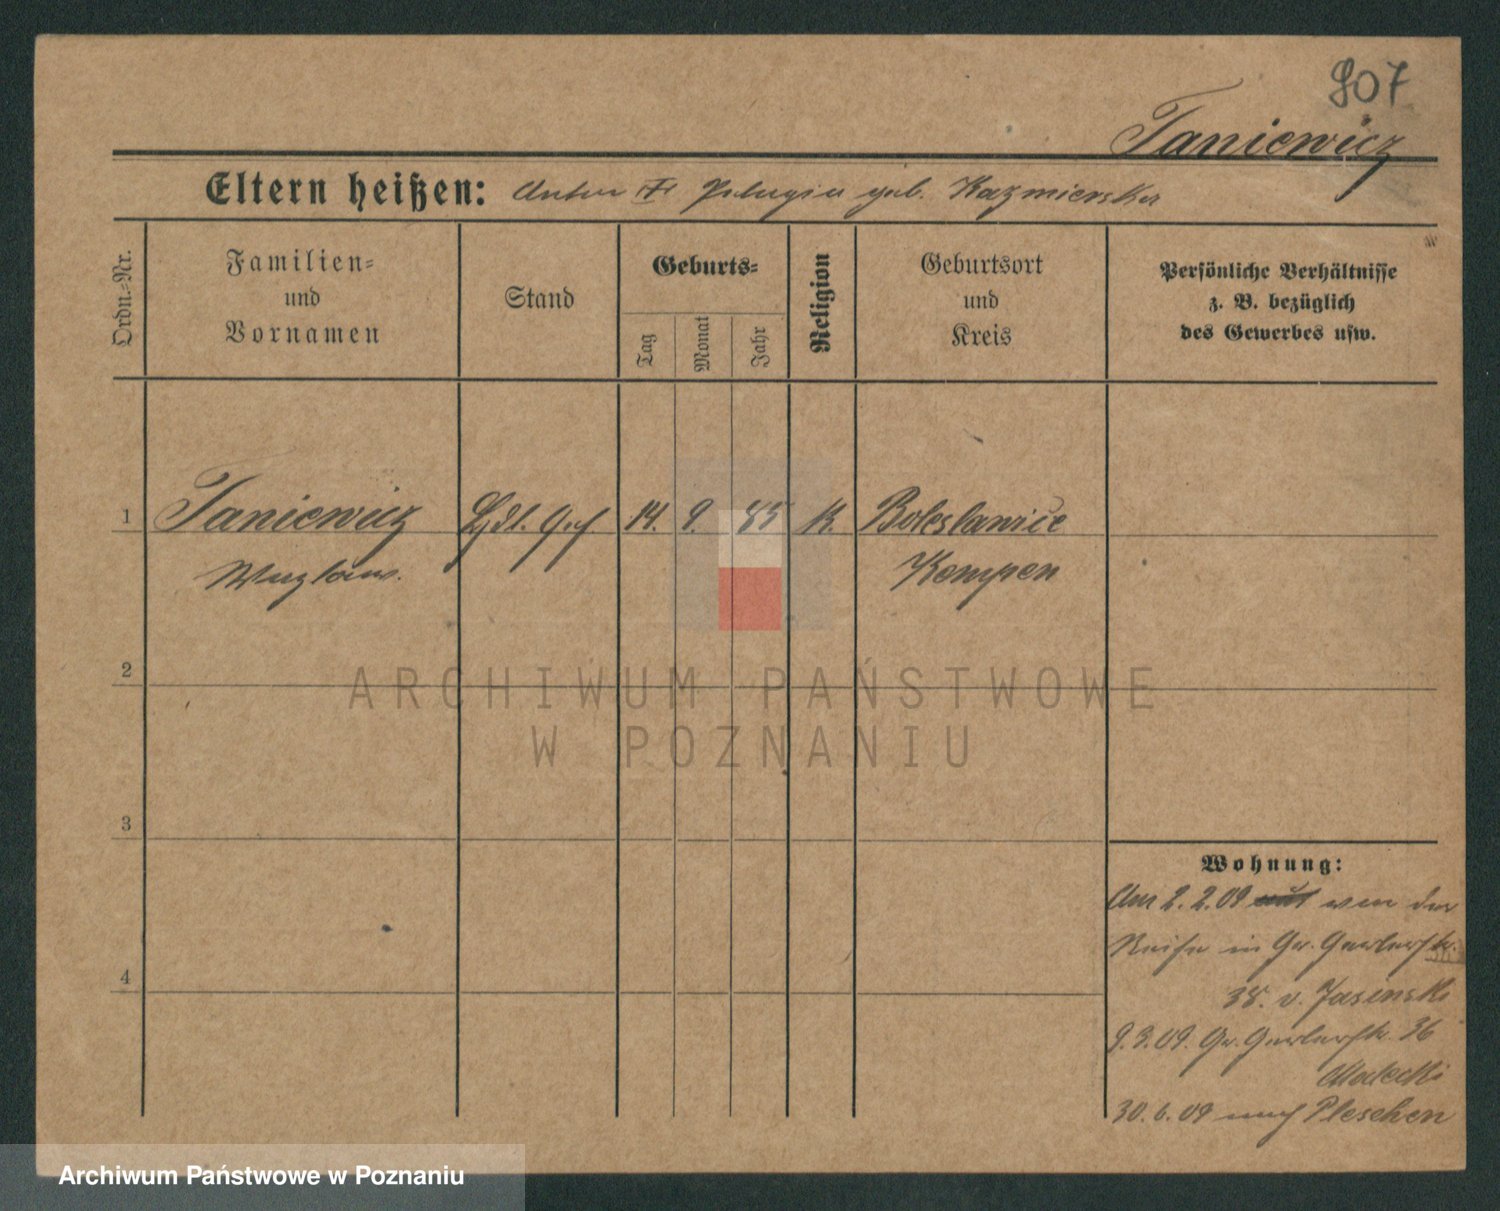 807
Taniewicz
Eltern heißen: Anton Pelagia geb. Kazmierska
Ordn.-Nr.
Familien-
und
Vornamen
Stand
Geburts-
Tag
Monat
Jahr
Religion
Geburtsort
und
Kreis
Persönliche Verhältnisse
z. B. bezüglich
des Gewerbes usw.
1 Taniewicz 14. 9. 85 K. Boleslawice
Wazlaw. Kempen
2
3
4
Wohnung:
Am 2. 2. 09 von der
Reise in Gr. Gerberstr.
38. v. Jasinski
9.3.09. Gr. Gerberstr. 36
Malecki
30.6.09 nach Pleschen
ARCHIWUM PAŃSTWOWE
W POZNANIU
Archiwum Państwowe w Poznaniu